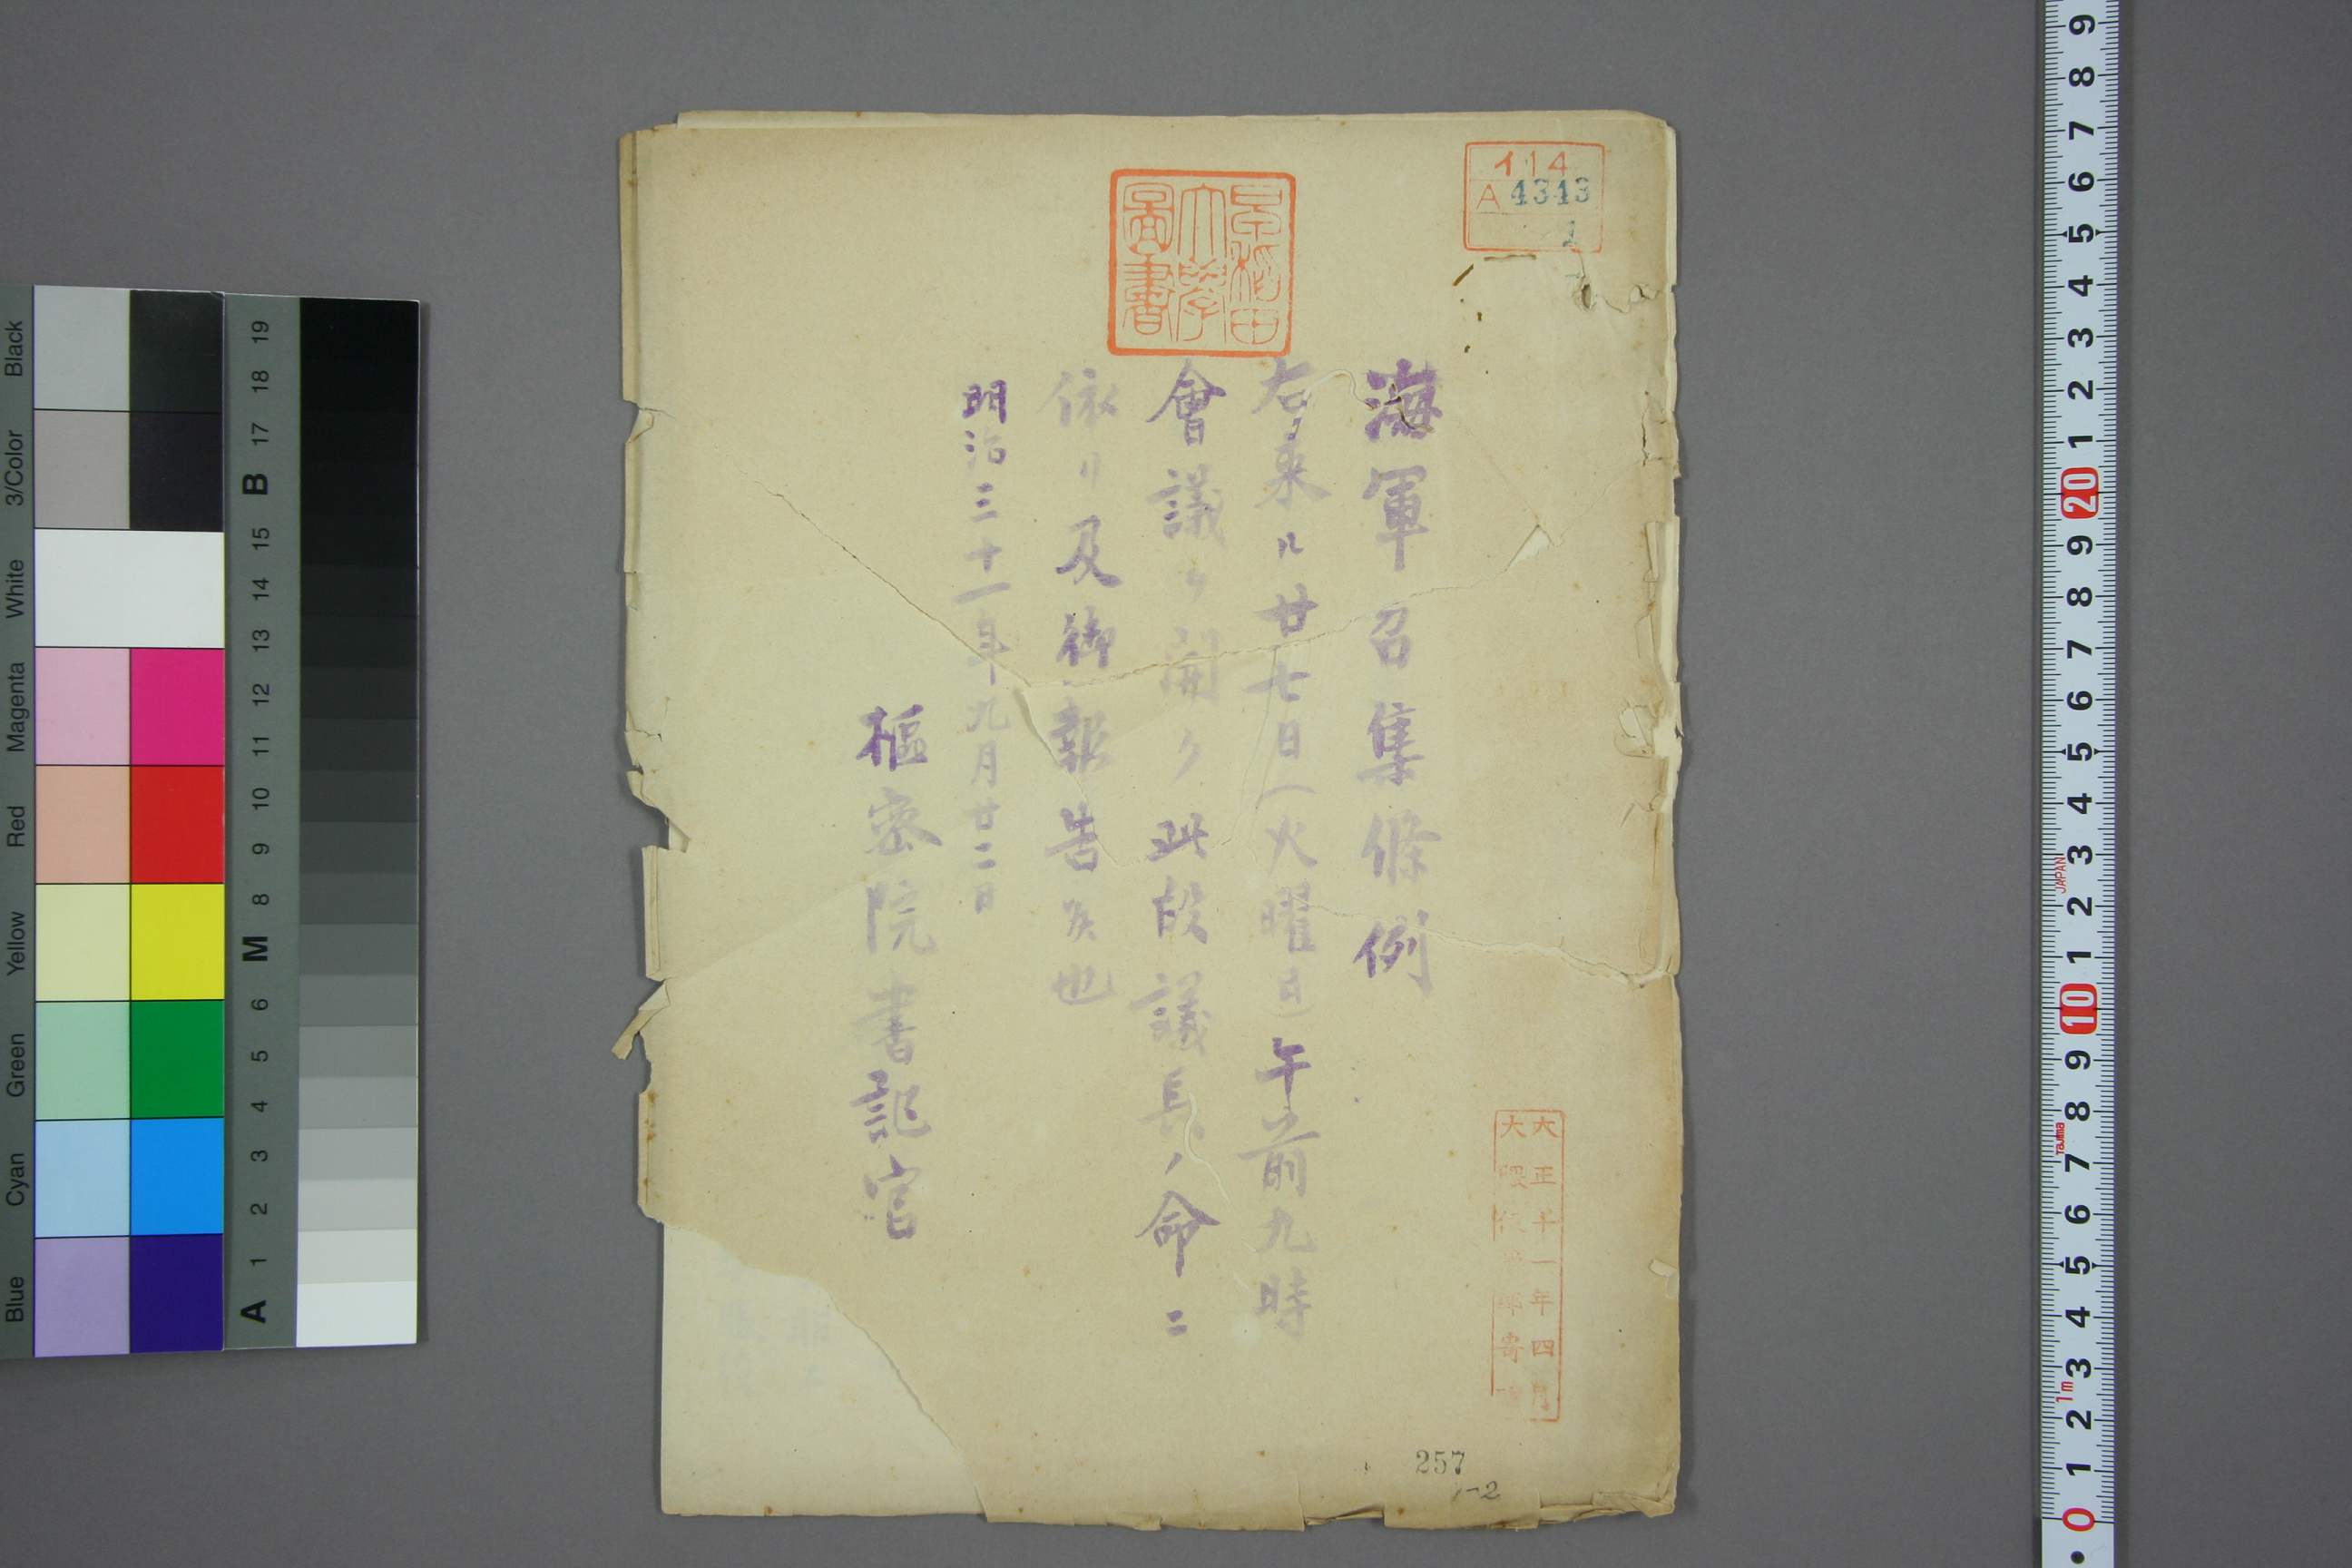 海軍召集條例
右来ル廿七日（火曜日）午前九時
會議ヲ開ク此段議長ノ命ニ
依リ及御報告候也
明治三十一年九月廿二日
樞密院書記官
早稲田
大學
圖書
イ14
A 4343
1
大正十一年四月
大隈侯爵家寄贈
257
1-2
Black
3/Color
White
Magenta
Red
Yellow
Green
Cyan
Blue
19
18
17
B
15
14
13
12
11
10
9
8
M
6
5
4
3
2
1
A
9
8
7
6
5
4
3
2
1
20
9
8
7
6
5
4
3
JAPAN
2
1
10
9
8
Tajima
7
6
5
4
3
1m
2
1
0